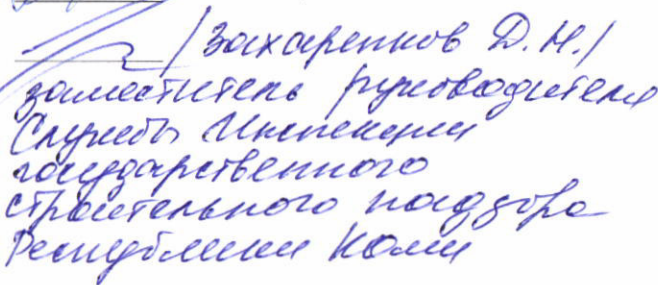 /Захаренков Д.Н./
заместитель руководителя
Службы Инспекции
государственного
строительного надзора
Республики Коми